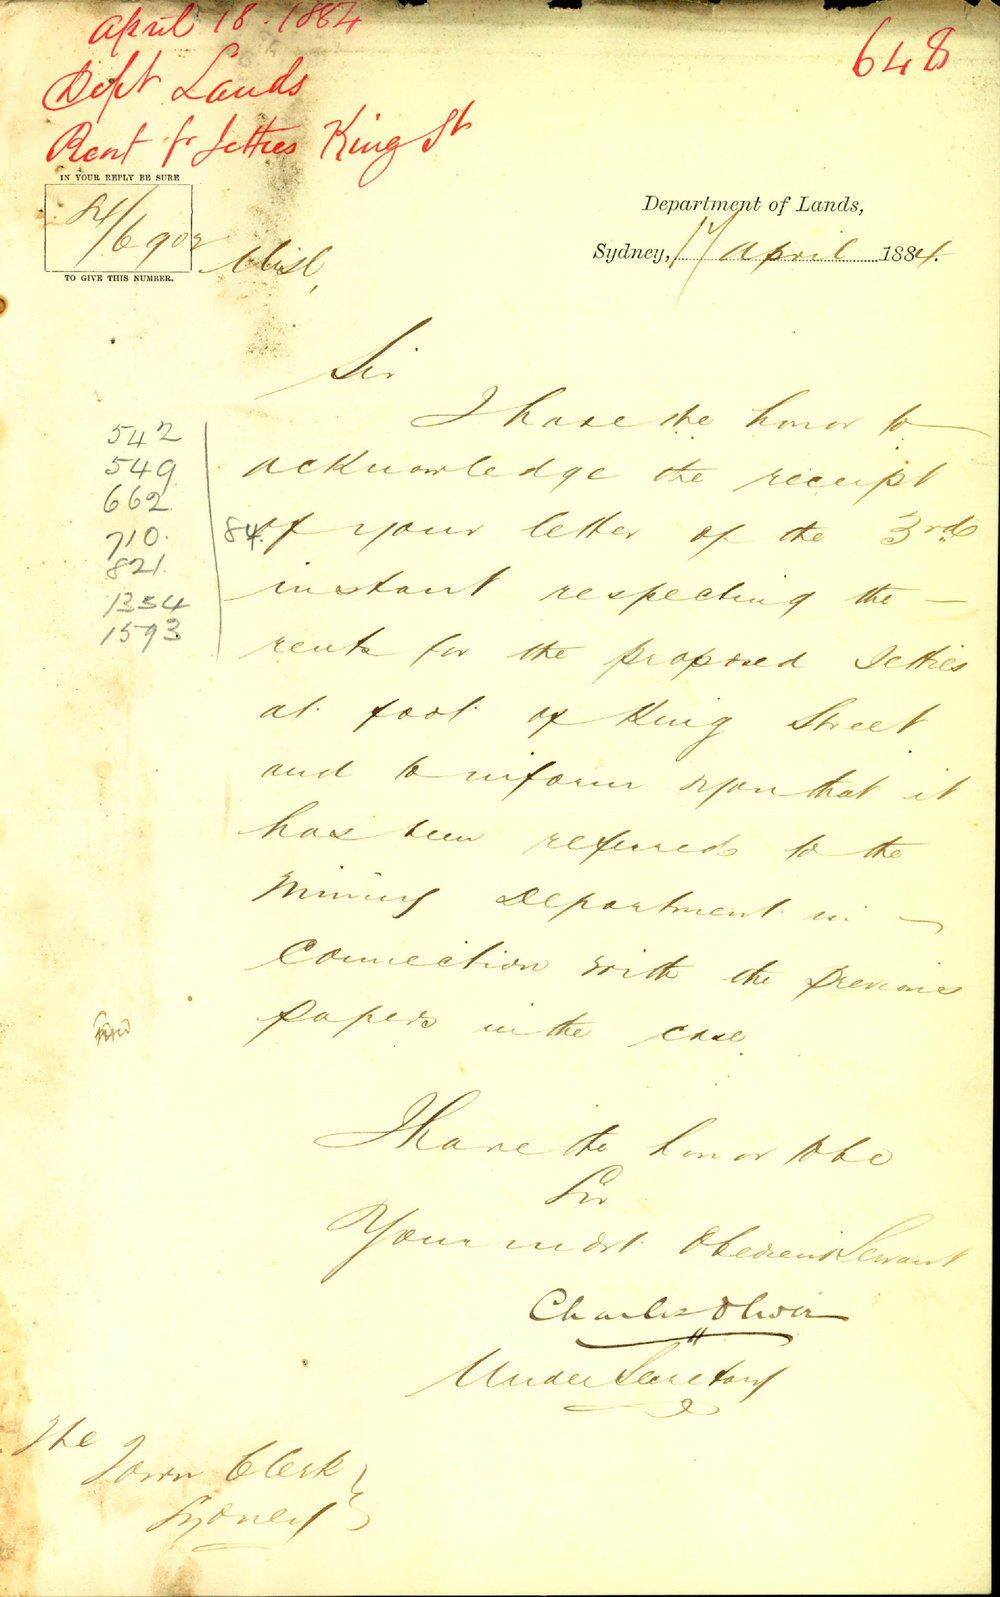 April 18. 1884
648
Dept Lands
Rent fr Jetties King St
IN YOUR REPLY BE SURE
84/6902
TO GIVE THIS NUMBER.
Misl,
Department of Lands,
Sydney, 17 April 1884.
Sir
I have the honor to
acknowledge the receipt
of your letter of the 3rd
instant respecting the
rents for the proposed Jetties
at foot of King Street
and to inform you that it
has been referred to the
Mining Department in
connection with the previous
papers in the case
542
549
662
710.
821.
1354
1593
84.
I have the honor to be
Sir
Your most Obedient Servant
Charles Oliver
Under Secretary
The
Town Clerk
Sydney